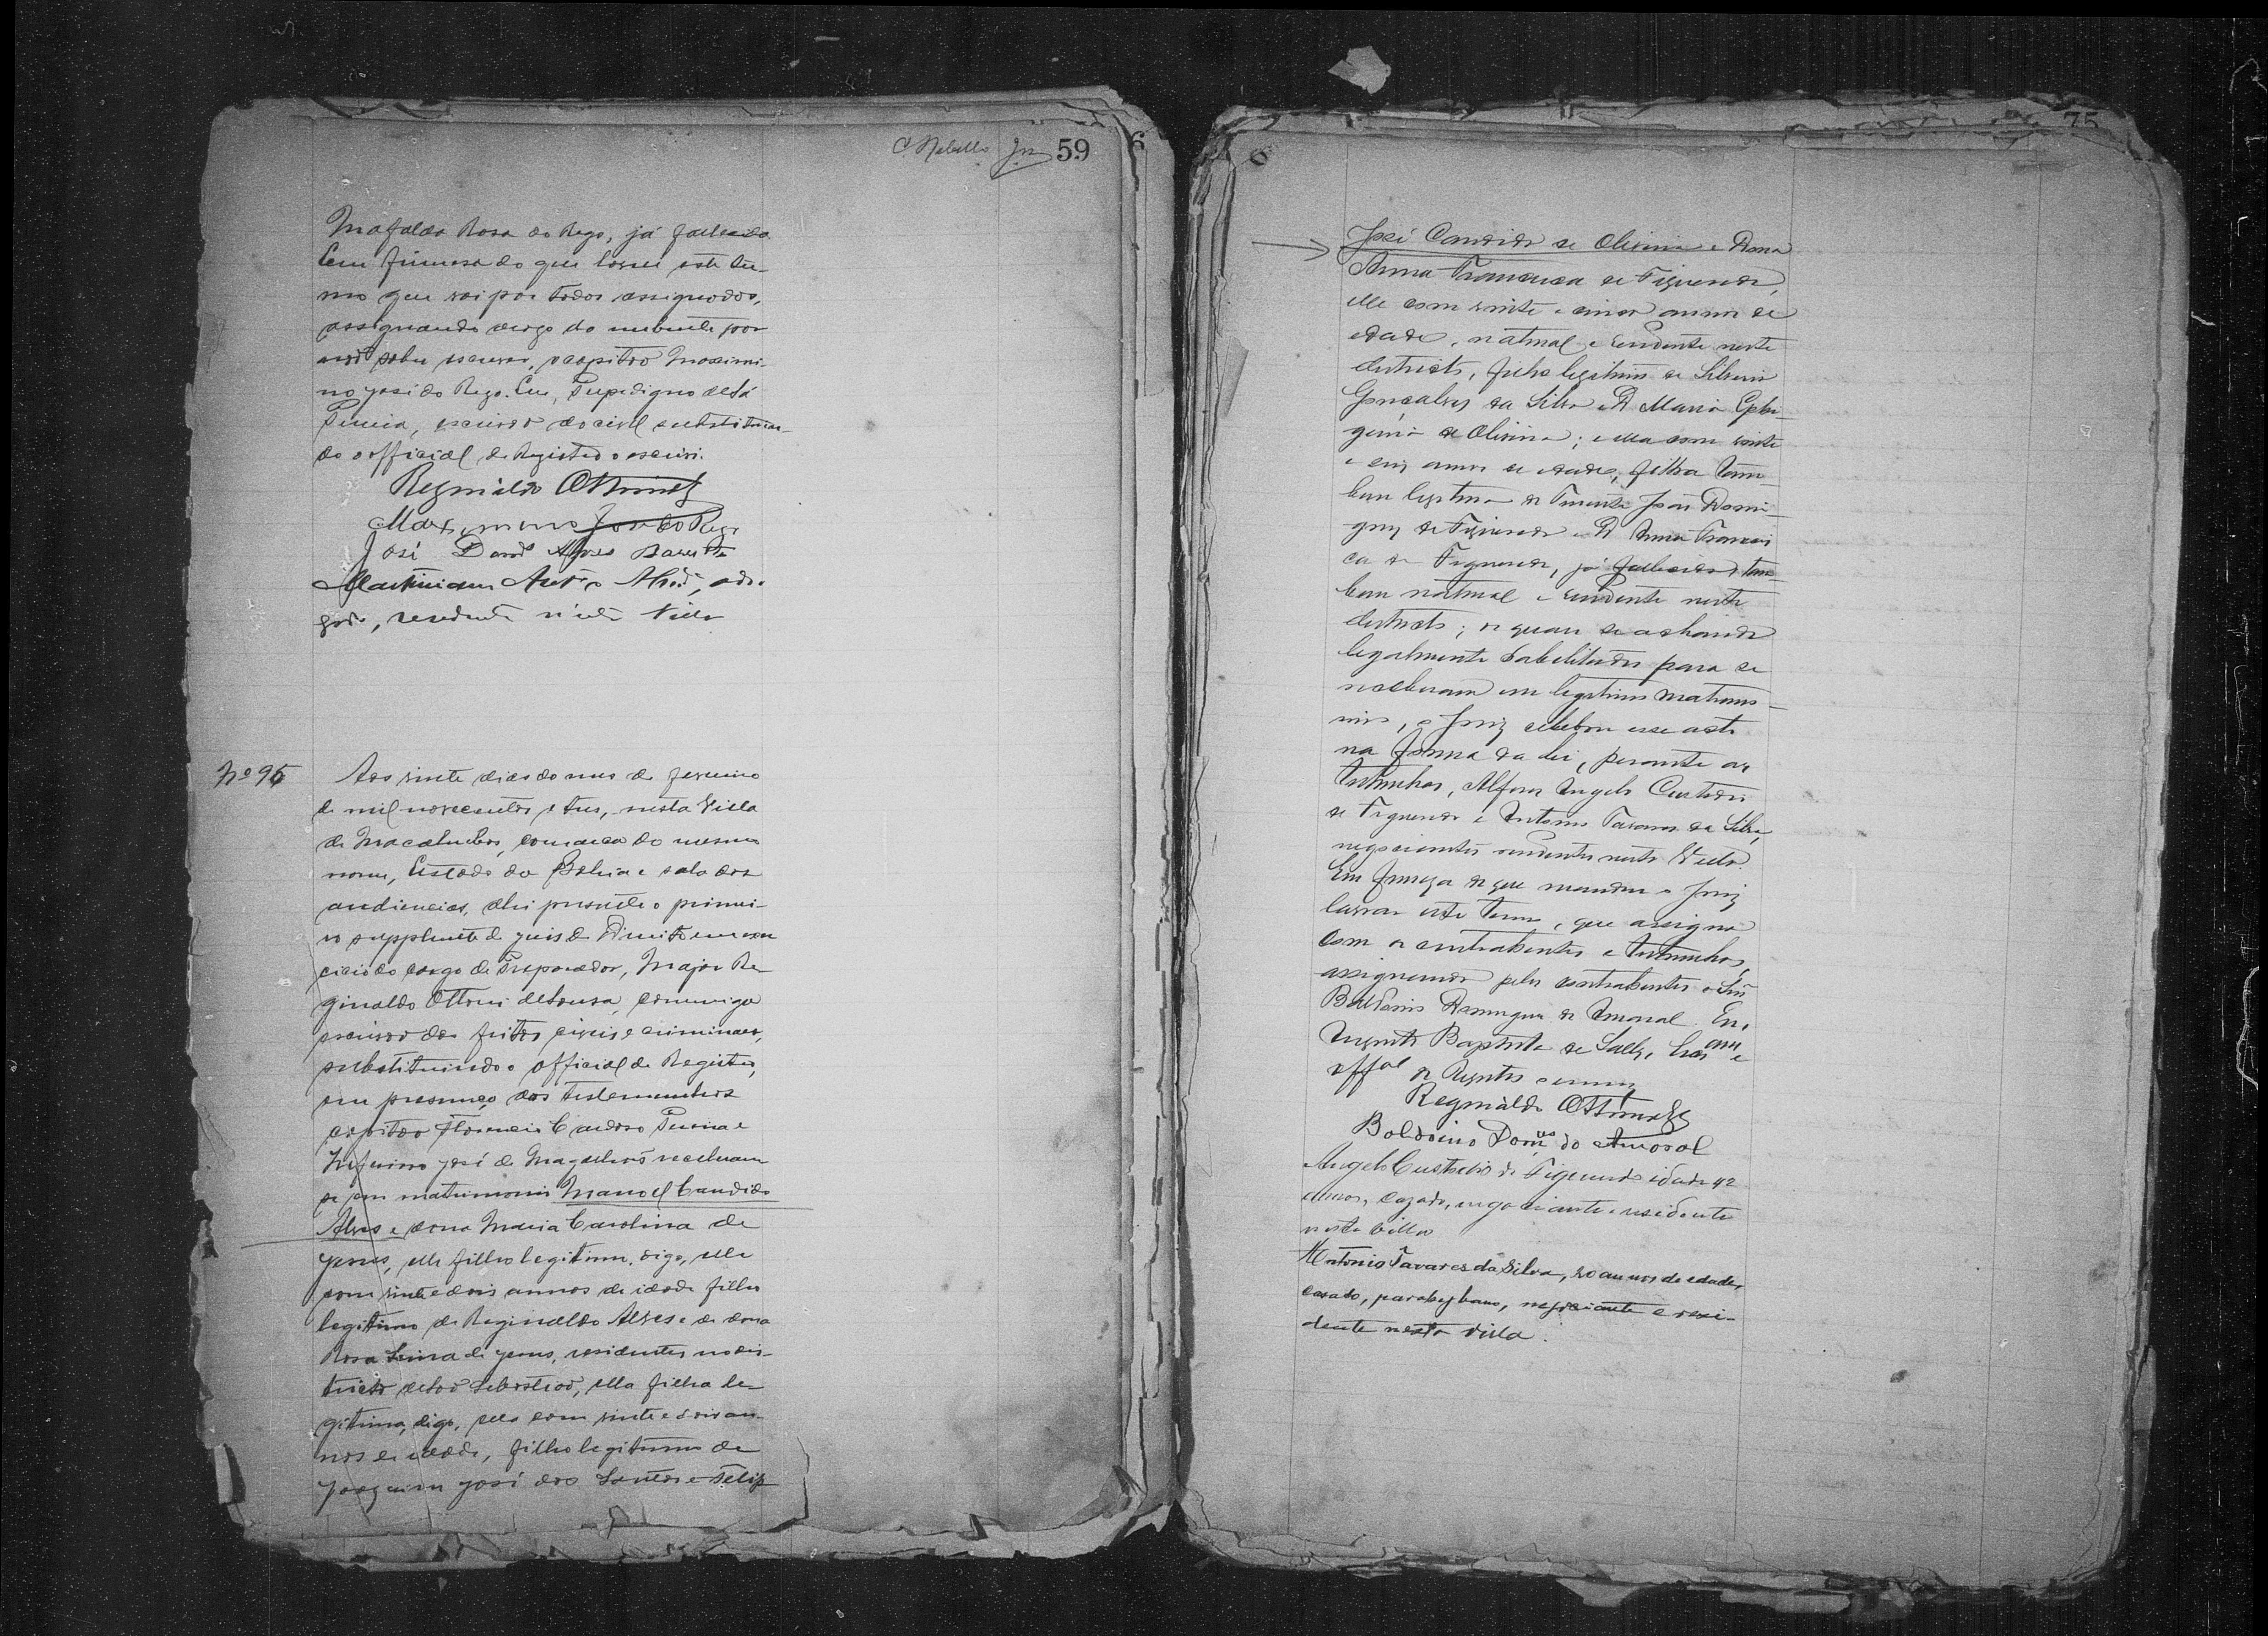 C Rebello Jnr 59
Mafalda Rosa do Rego, já fallecida
Em firmesa do que lavrei este ter-
mo que vai por todos assignados,
assignando arogo do nubente por
não saber escrever, o capitão Maximi-
no José do Rego. Eu, 
Pereira, escrivão do civel substituin-
do o official de Registro o escrevi.
Reginaldo Ottoni
Maximino José do Rego
José David Alves Barretto
Martiniano 
residente n'esta Villa
Nº 95
Aos vinte dias do mes de Fevereiro
de mil novecentos e tres, nesta Villa
de Macahubas, comarca do mesmo
nome, Estado da Bahia e sala das
audiencias, ahi presente o primei-
ro supplente de Juis de Direito em exer
cicio do cargo de Preparador, Major Re-
ginaldo Ottoni de Sousa, commigo
escrivão dos feitos civeis e criminaes,
substituindo o official de Registro,
em presença das testemunhas
capitão Florencio Cardoso Pereira e
Zeferino José de Magalhães receberam
se em matrimonio Manoel Candido
Alves e dona Maria Carolina de
Jesus, elle filho legitimo, digo, elle
com vinte e dois annos de idade filho
legitimo de Reginaldo Alves e de dona
Rosa Lima de Jesus, residentes no dis-
tricto de São Sebastião, ella filha le-
gitima, digo, ella com vinte e dois an-
nos de idade, filha legitima de
Joaquim José dos Santos e Felip
6
75
José Candido de Oliveira e Dona
Anna Francisca de Figueredo,
elle com vinte e cinco annos de
edade, natural e residente neste
districto, filho legitimo de Silverio
Gonçalves da Silva e D Maria Ephi-
genia de Oliveira; e ella com vinte
e seis annos de edade, filha tam-
bem legitima de Tenente João Domin-
gues de Figueredo e D Anna Francis
ca de Figueredo, já fallecida e tam-
bem natural e residente neste
districto; os quaes se achando
legalmente habilitados para se
receberem em legitimo matrimo-
nio, o Juiz celebrou esse acto
na forma da lei, perante as
testemunhas, Alferes Angelo Custodio
de Figueredo e Antonio Tavares da Silva,
negociantes residentes nesta Villa.
Em firmeza de que mandou o Juiz
lavrar este termo, que assigna
com os contrahentes e testemunhas,
assignando pelos contrahentes o Snr
Baldoino Domingues do Amaral. Eu,
Augusto Baptista de Salles, Escram e
offal de Registro o escrevi
Reginaldo Ottoni
Baldoino Domues do Amaral
Angelo Custodio de Figueredo idade 42
annos, cazado, negociante e residente
nesta villa
Antonio Tavares da Silva, 20 annos de edade,
casado, parahybano, negociante e resi-
dente nesta villa.